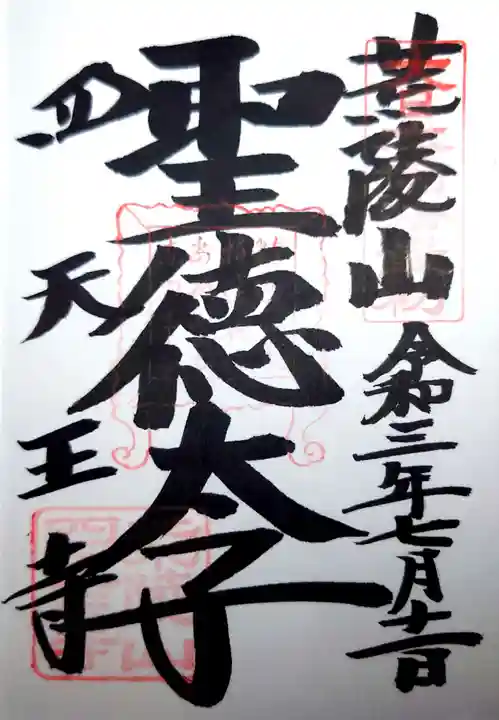 荒陵山 令和三年七月十一日
聖徳太子
四天王寺